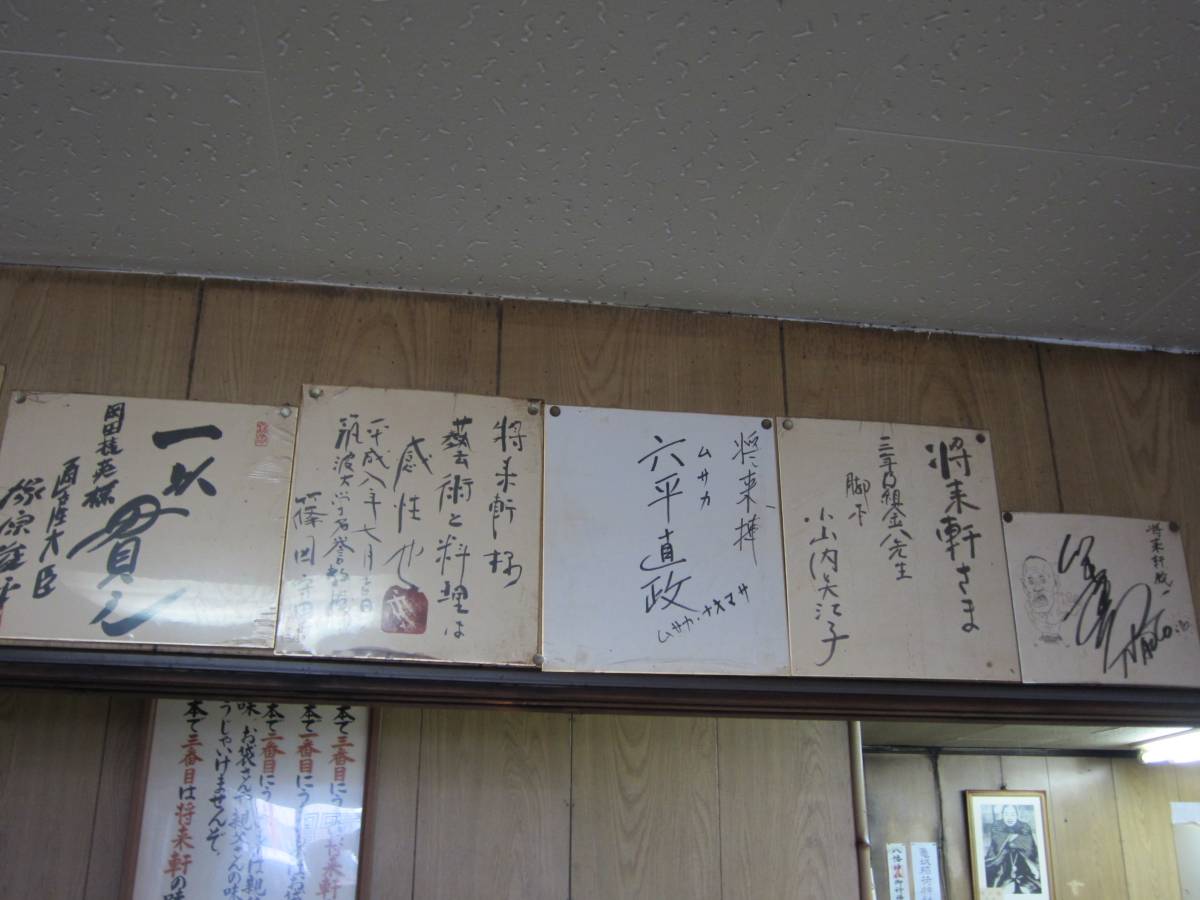 一以貫之
岡田桂苑様
通産大臣
塚原俊平
将来軒様
藝術と料理は
感性也
平成八年七月
筑波大学名誉教授
篠田守男
将来軒
ムサカ
六平直政
ムサカ・ナオマサ
将来軒さま
三年B組金八先生
脚本
小山内美江子
将来軒
本で三番目にう
本で一番目にう
本で二番目にう
味、お袋さんや親父さんの味
うじゃいけませんぞ。
本で三番目は将来軒の味